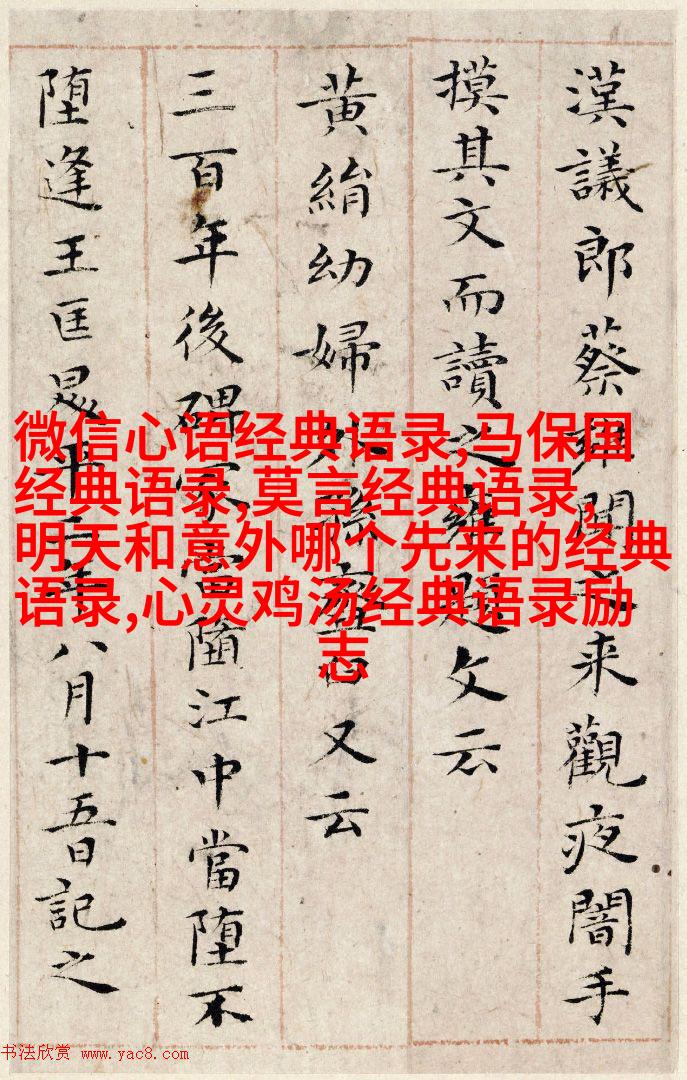 漢議郎蔡雍聞之来觀夜闇手
摸其文而讀之雍題文云
黃絹幼婦外孫又云
三百年後碑冢當墮江中當堕不
堕逢王匡昇平二年八月十五日記之
微信心语经典语录,马保国
经典语录,莫言经典语录,
明天和意外哪个先来的经典
语录,心灵鸡汤经典语录励
志
书法欣赏 www.yac8.com